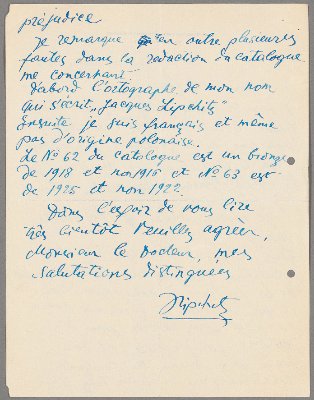 préjudice
Je remarque en outre plusieurs
fautes dans la rédaction du catalogue
me concernant
d'abord l'ortographe de mon nom
qui s'écrit „Jacques Lipchitz"
Ensuite je suis français et même
pas d'origine polonaise.
Le No 62 du catalogue est un bronze
de 1918 et non 1916 et No 63 est
de 1925 et non 1922.
Dans l'espoir de vous lire
très bientôt veuillez agréer,
Monsieur le Docteur, mes
salutations distinguées
JLipchitz